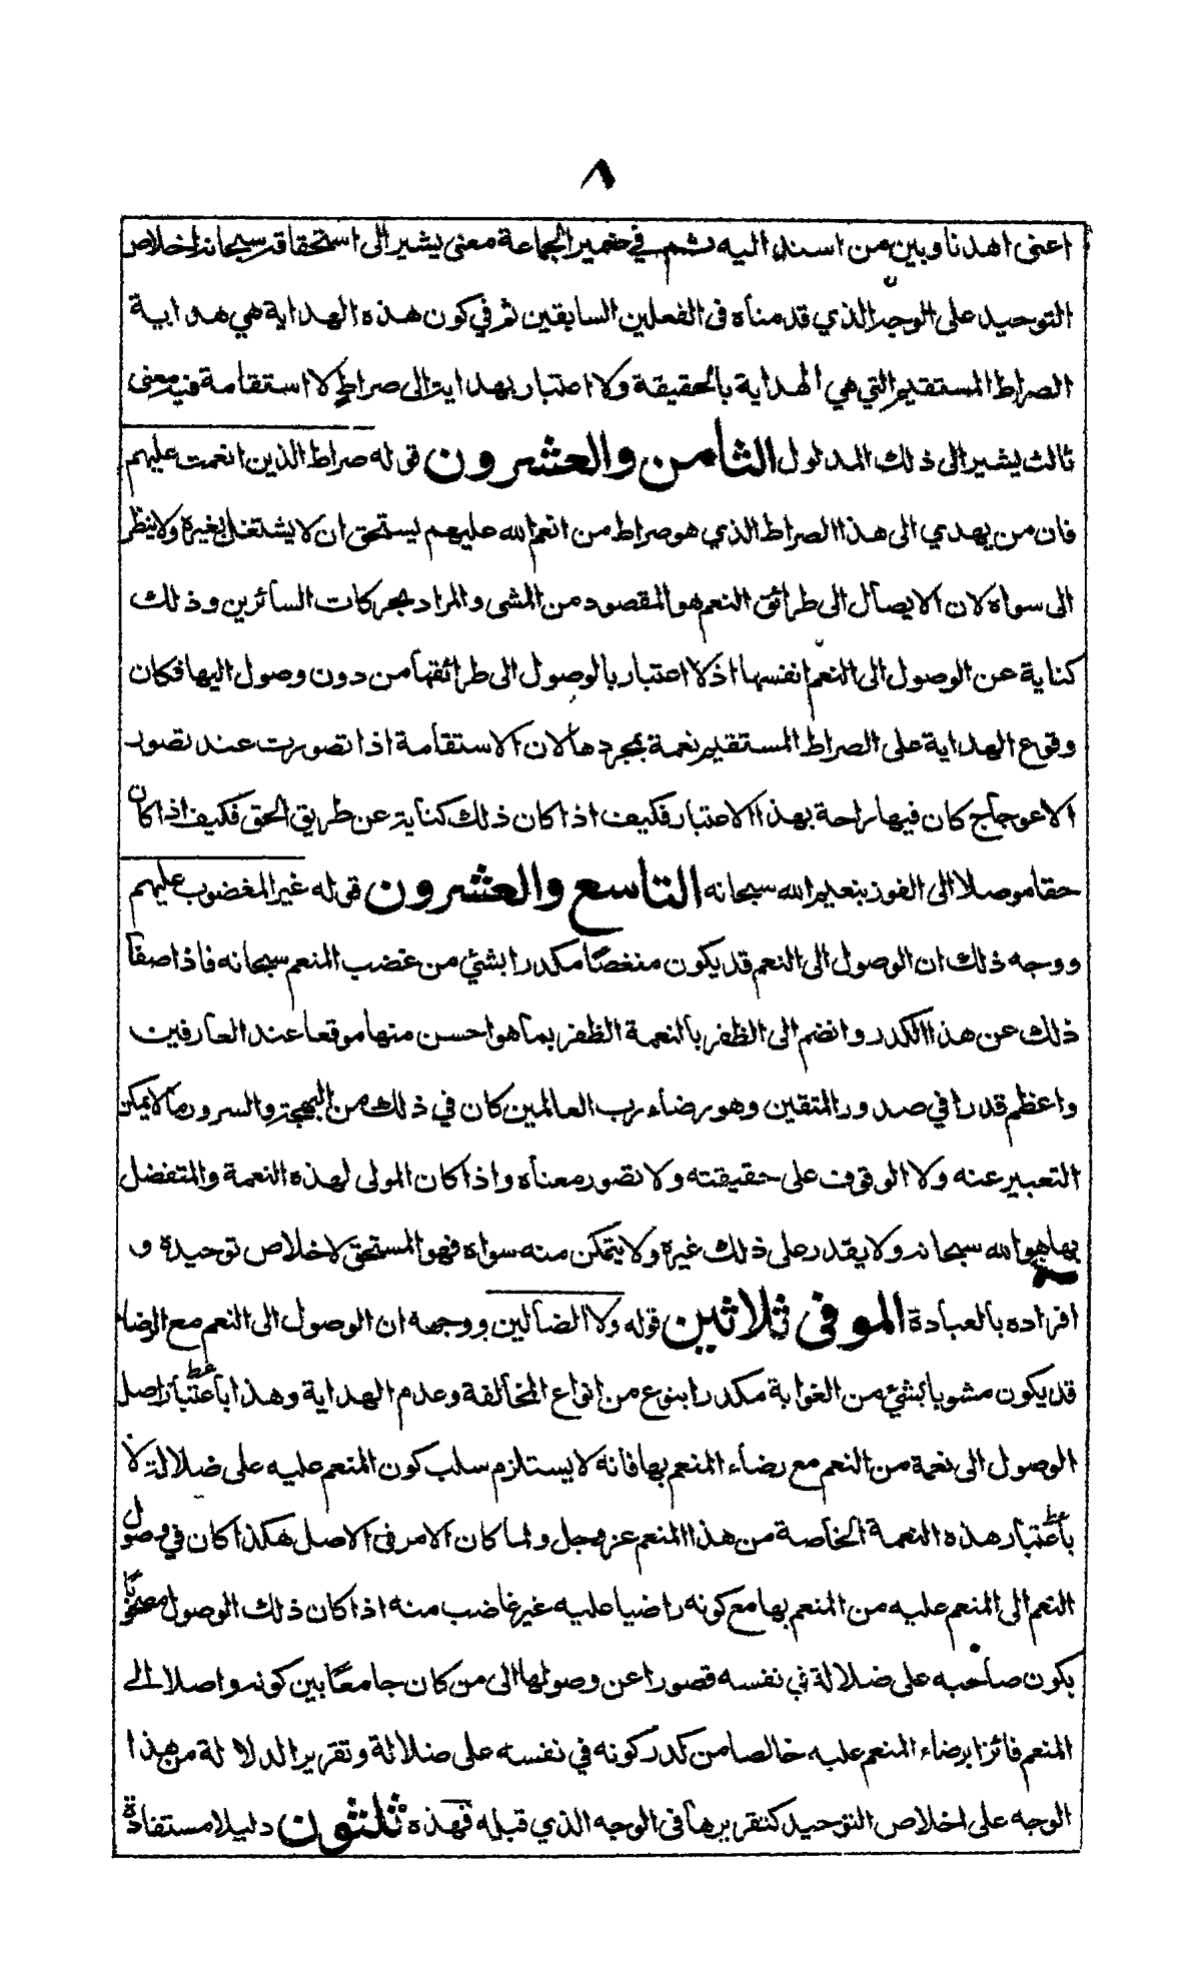 ٨
اعنى اهدنا وبين من اسند اليه ثم في ضمير الجماعة معنى يشير الى استحقاقه سبحانه اخلاص
التوحيد على الوجه الذي قدمناه فى الفعلين السابقين ثم في كون هذه الهداية هي هداية
الصراط المستقيم التي هي الهداية بالحقيقة ولا اعتبار بهداية الى صراط لا استقامة فيه معنى
ثالث يشير الى ذلك المدلول الثامن والعشرون قوله صراط الذين انعمت عليهم
فان من يهدي الى هذا الصراط الذي هو صراط من انعم الله عليهم يستحق ان لا يشتغل بغيره ولا ينظر
الى سواه لان الايصال الى طرائق النعم هو المقصود من المشى والمراد بحركات السائرين وذلك
كناية عن الوصول الى النعم انفسها اذ لا اعتبار بالوصول الى طرائقها من دون وصول اليها فكان
وقوع الهداية على الصراط المستقيم نعمة بمجردها لان الاستقامة اذا تصورت عند تصور
الاعوجاج كان فيها راحة بهذا الاعتبار فكيف اذا كان ذلك كناية عن طريق الحق فكيف اذا كان
حقا موصلا الى الفوز بنعيم الله سبحانه التاسع والعشرون قوله غير المغضوب عليهم
ووجه ذلك ان الوصول الى النعم قد يكون منغصًا مكدرا بشئ من غضب المنعم سبحانه فاذا صفا
ذلك عن هذا الكدر وانضم الى الظفر بالنعمة الظفر بما هو احسن منها موقعا عند العارفين
واعظم قدرا في صدور المتقين وهو رضاء رب العالمين كان في ذلك من البهجة والسرور ما لا يمكن
التعبير عنه ولا الوقوف على حقيقته ولا تصور معناه واذا كان المولى لهذه النعمة والمتفضل
بها هو الله سبحانه ولا يقدر على ذلك غيره ولا يتمكن منه سواه فهو المستحق لاخلاص توحيده و
افراده بالعبادة الموفى ثلاثين قوله ولا الضالين ووجهه ان الوصول الى النعم مع الرضاء
قد يكون مشوبا بشئ من الغواية مكدرا بنوع من انواع المخالفة وعدم الهداية وهذا باعتبار اصل
الوصول الى نعمة من النعم مع رضاء المنعم بها فانه لا يستلزم سلب كون المنعم عليه على ضلالة لا
باعتبار هذه النعمة الخاصة من هذا المنعم عز وجل ولما كان الامر فى الاصل هكذا كان في وصول
النعم الى المنعم عليه من المنعم بها مع كونه راضيا عليه غير غاضب منه اذا كان ذلك الوصول
يكون صاحبه على ضلالة في نفسه قصورا عن وصولها الى من كان جامعًا بين كونه واصلا الى
المنعم فائزا برضاء المنعم عليه خالصا من كدر كونه في نفسه على ضلالة وتقرير الدلالة من هذا
الوجه على اخلاص التوحيد كتقريرها فى الوجه الذي قبله فهذه ثلثون دليلا مستفادة